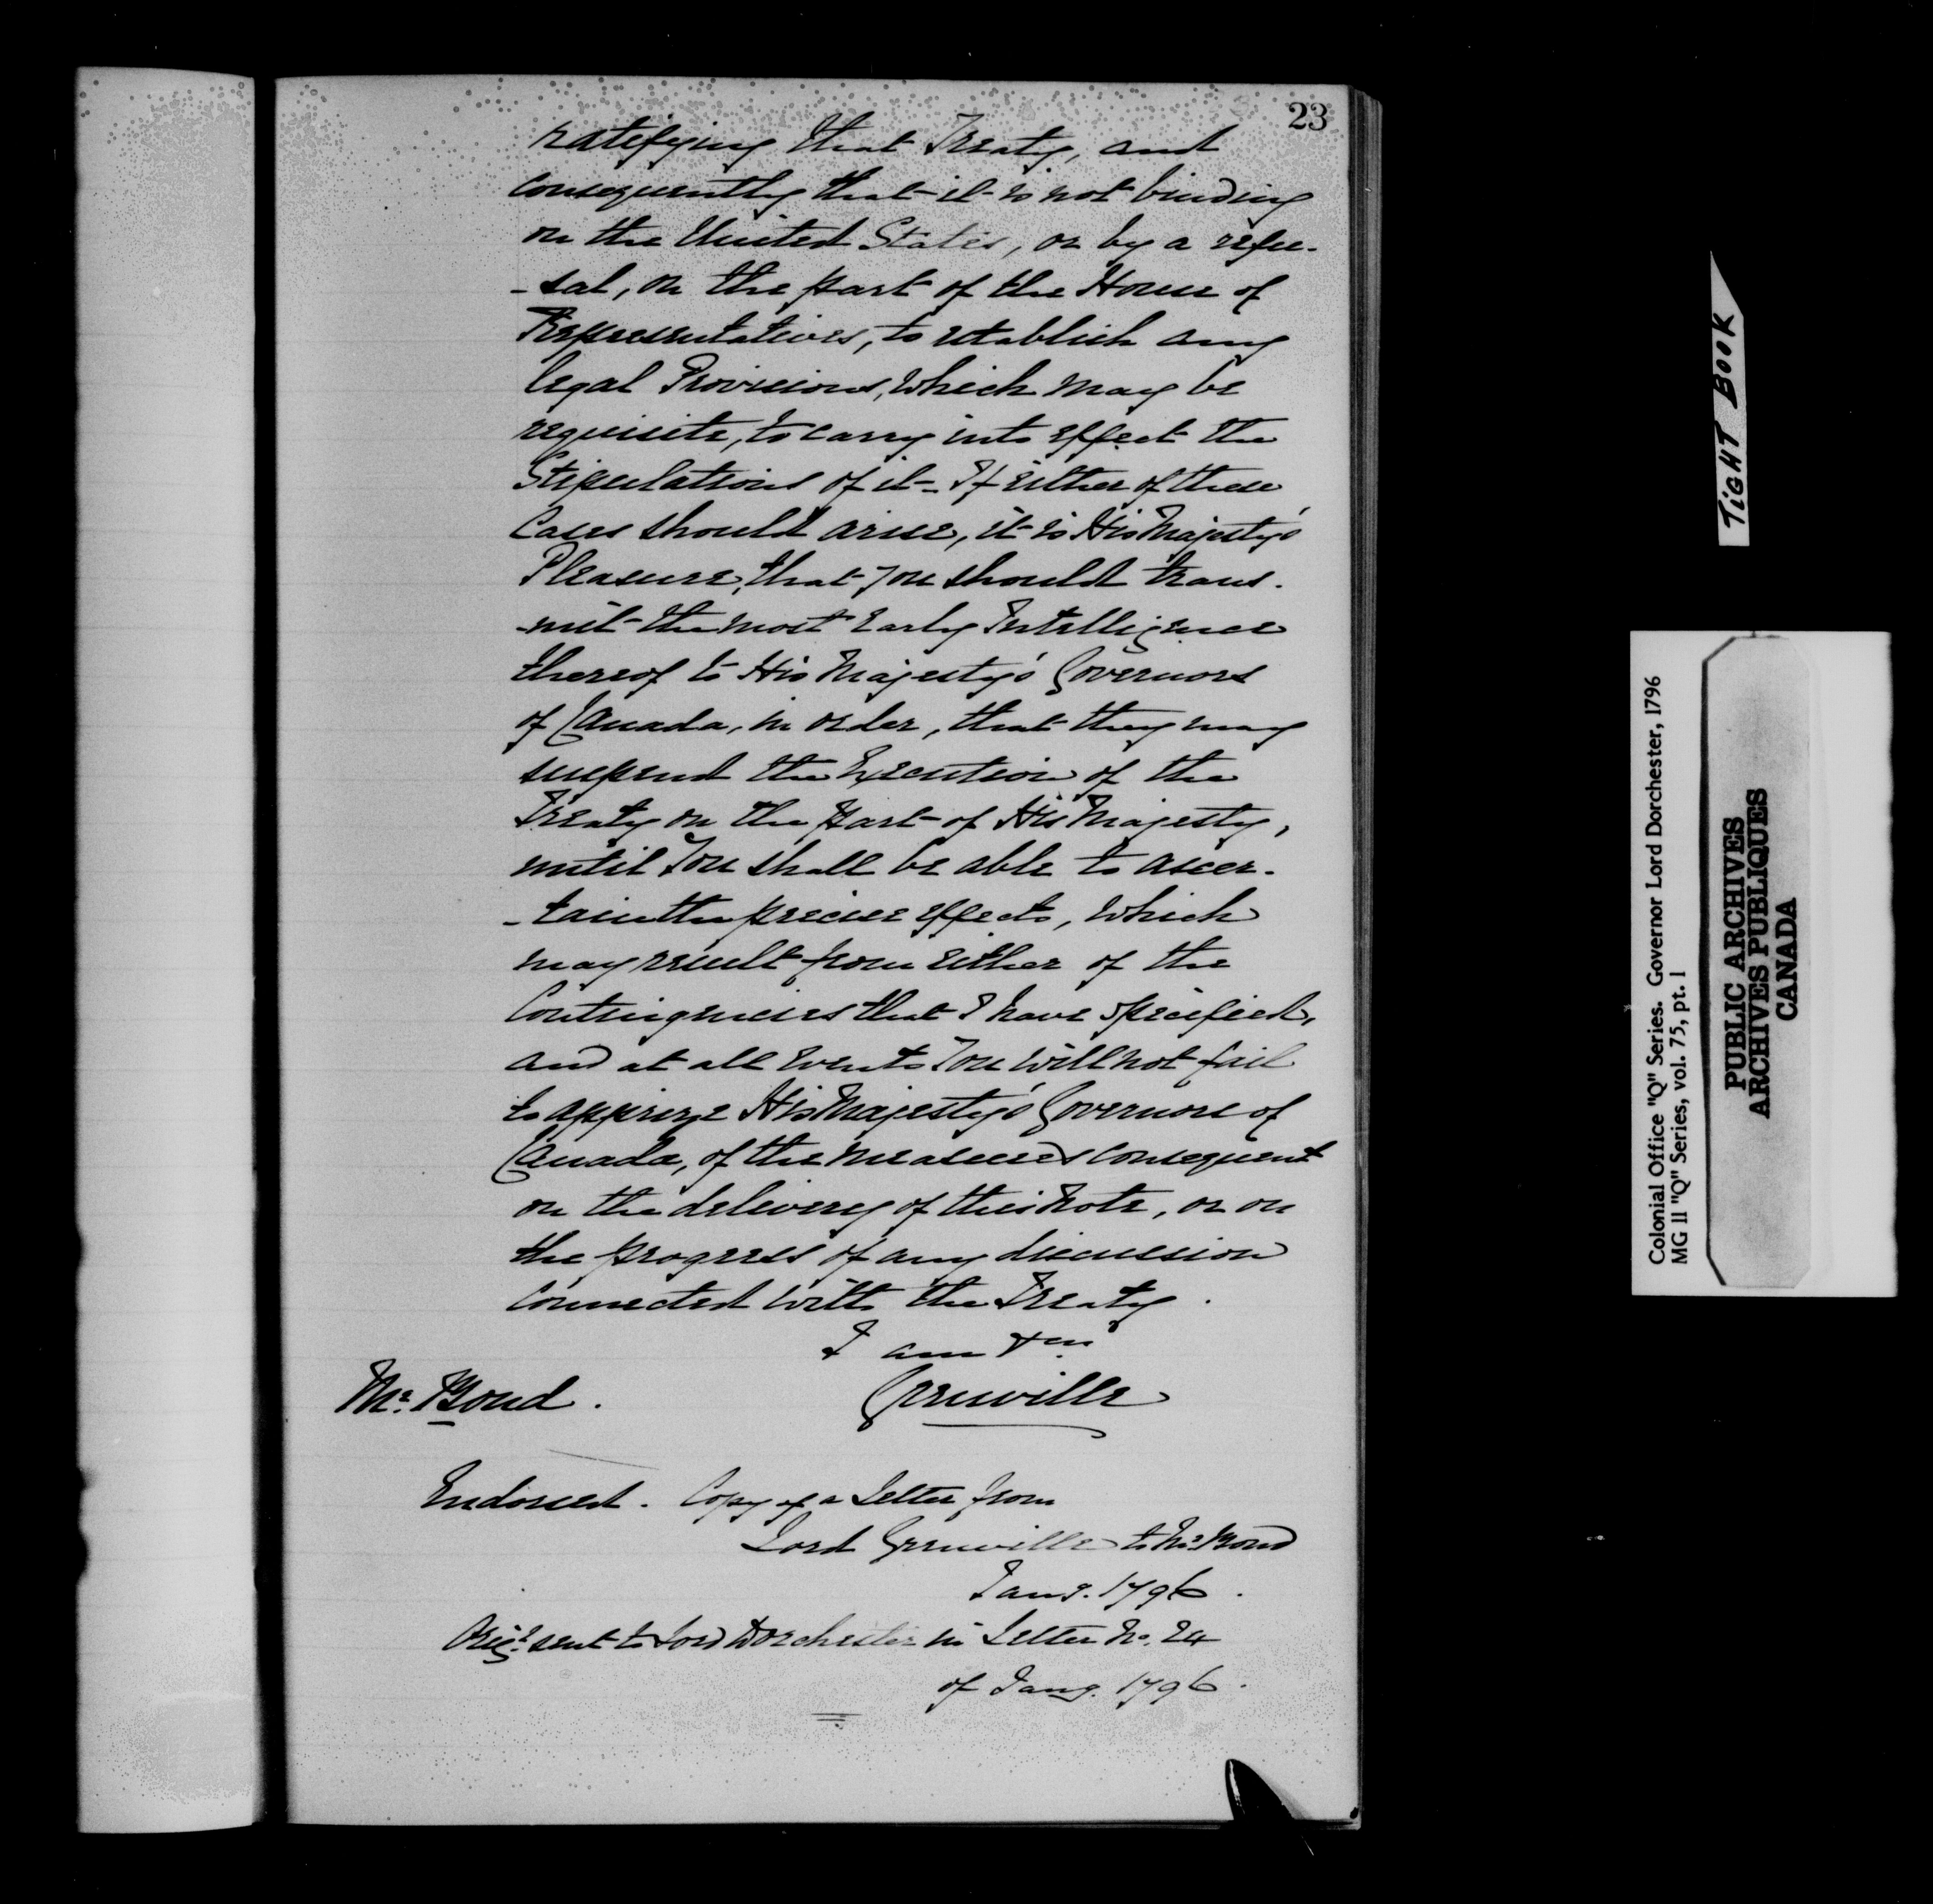 23
ratifying that Treaty, and
consequently that it is not binding
on the United States, or by a refu-
-sal, on the part of the House of
Representatives, to establish any
legal Provisions, which may be
requisite, to carry into effect the
Stipulations of it - If either of these
Cases should arise, it is His Majesty's
Pleasure, that you should trans-
-mit the most early Intelligence
thereof to His Majesty's Governors
of Canada, in order, that they may
suspend the Execution of the
Treaty on the part of His Majesty,
until You shall be able to ascer-
-tain the precise effects, which
may result from either of the
Contingencies that I have specified,
and at all events You will not fail
to apprize His Majesty's Governors of
Canada, of the measures consequent
on the delivery of this Note, or on
the progress of any discussion
connected with the Treaty.
I am &ca
Grenville
Mr. Bond.
Endorsed. Copy of a Letter from
Lord Grenville to Mr. Bond
Jany. 1796.
Origl. sent to Lord Dorchester in Letter No. 24
of Jany. 1796.
TIGHT BOOK
Colonial Office "Q" Series. Governor Lord Dorchester, 1796
MG 11 "Q" Series, vol. 75, pt. 1
PUBLIC ARCHIVES
ARCHIVES PUBLIQUES
CANADA